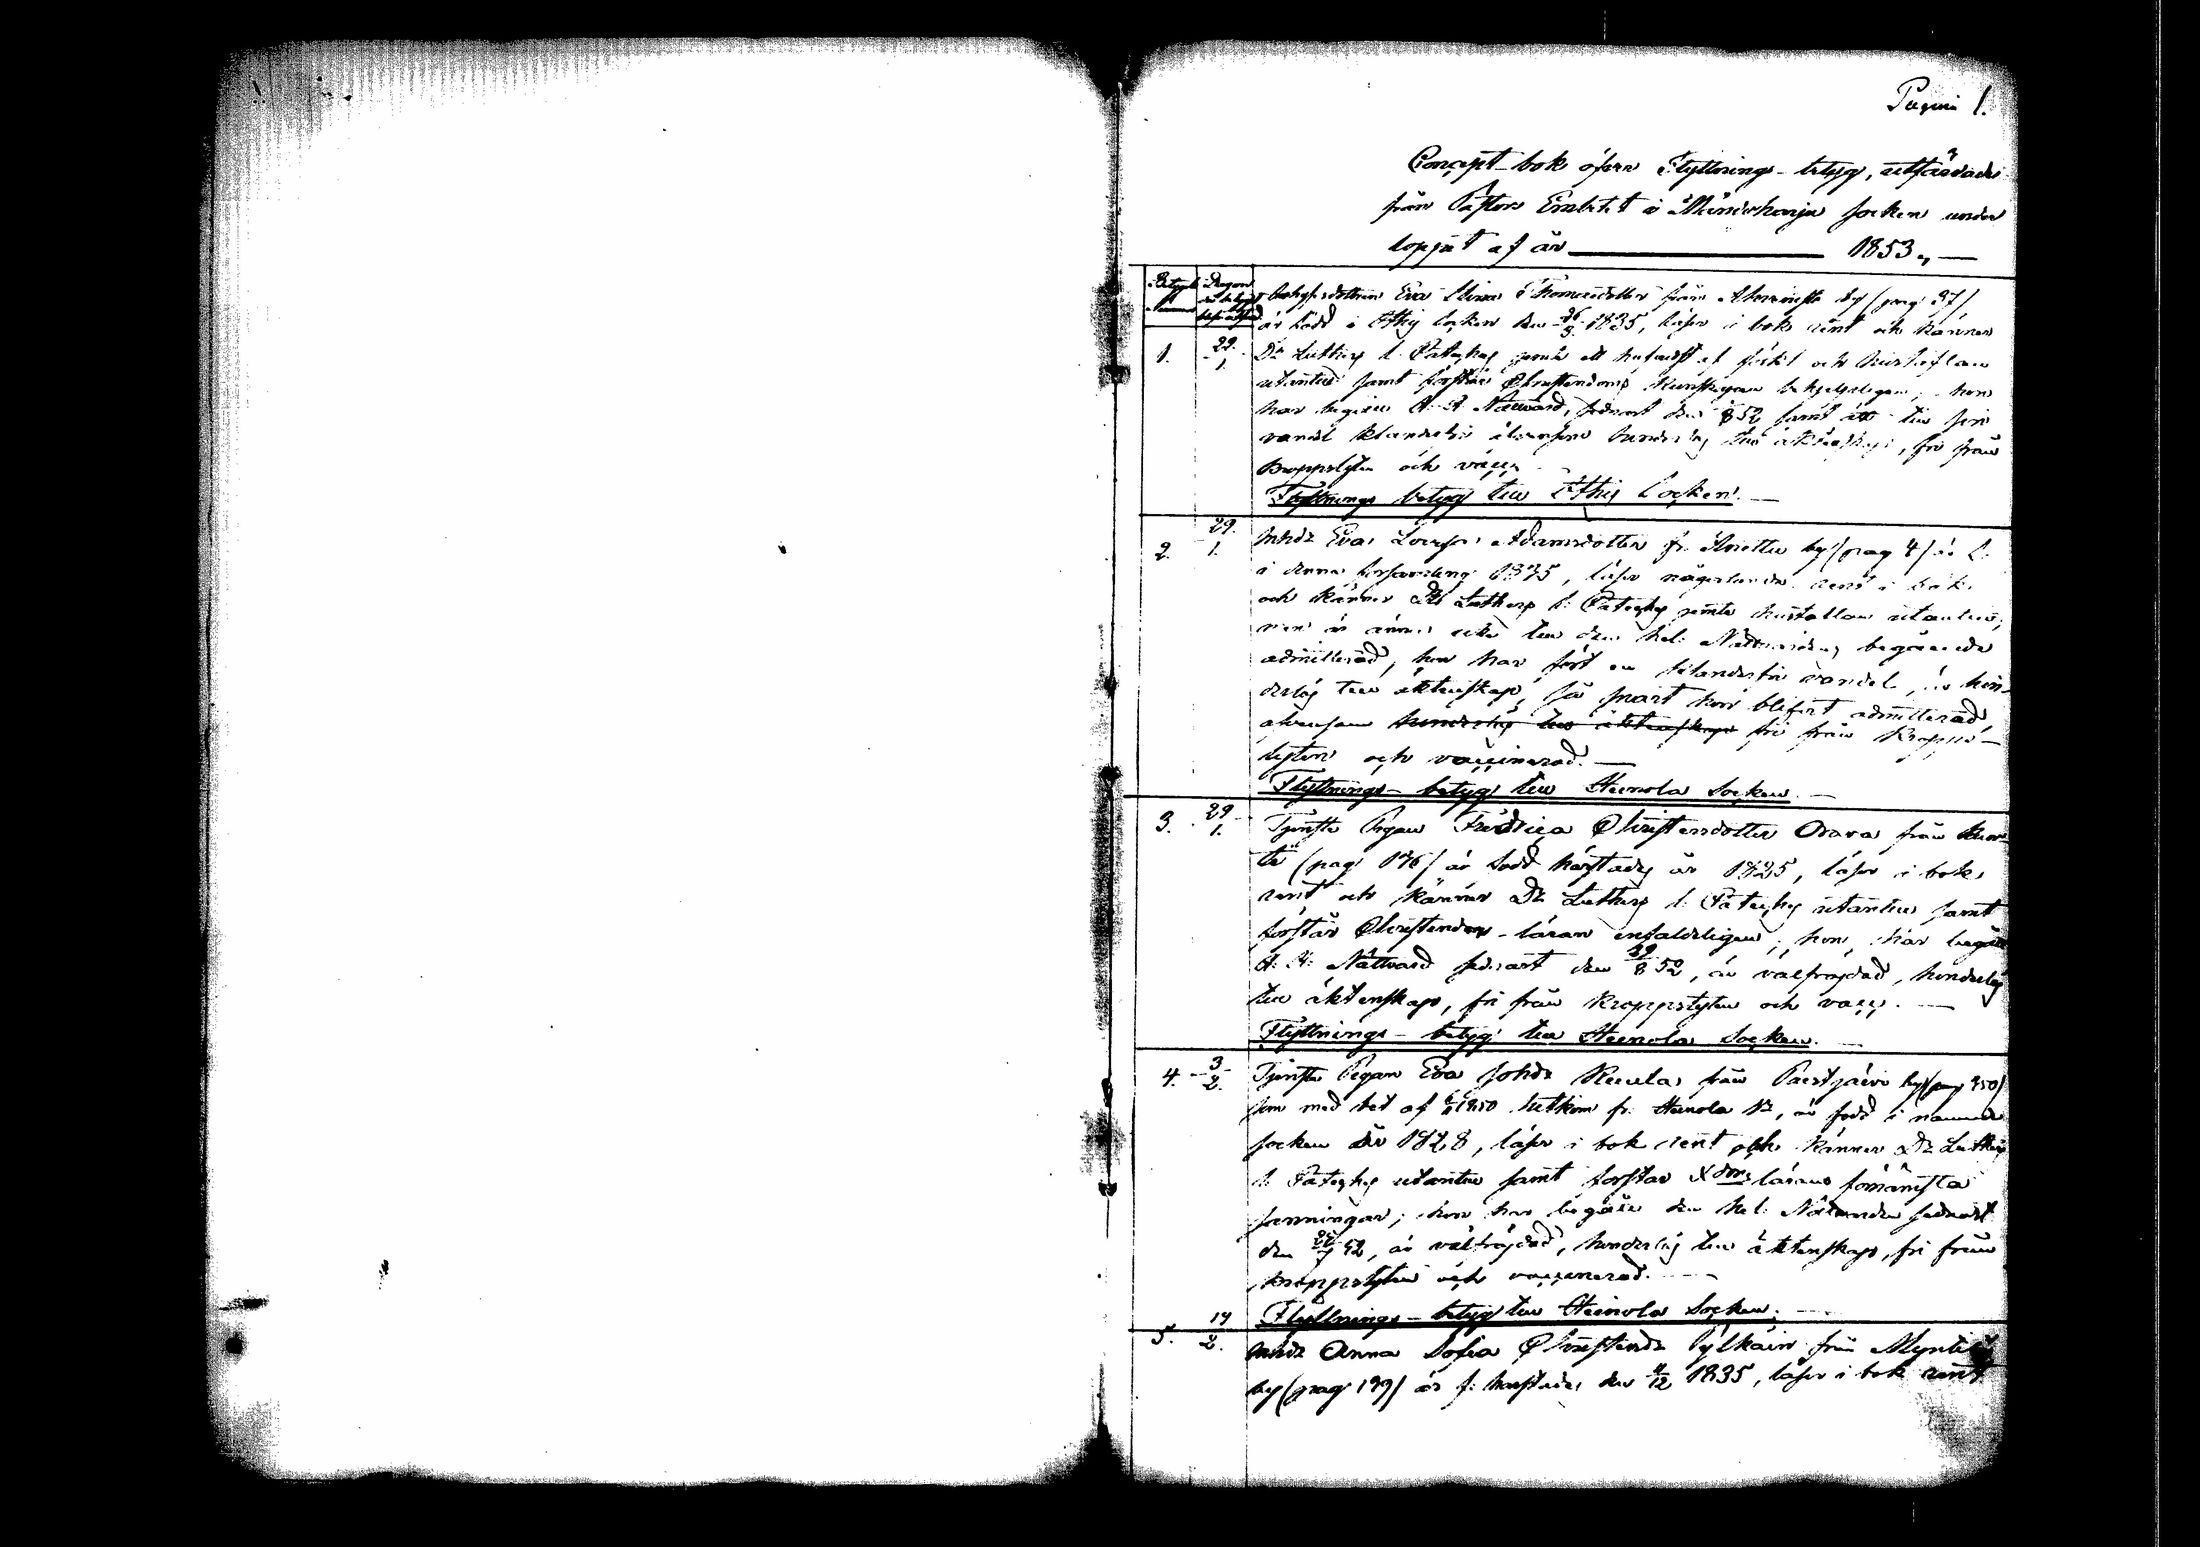 Pagina 1.
Concept-bok öfver Flyttnings-betyg, utfärdade
från Pastors Embetet i Mändtharju Socken under
loppet af år 1853.
Betygets Nummer
Dagen då betyget
Eva Stina Thomasdotter från by (pag 37)
är född i Ithis Socken den 1835, läser i bok rent och känner
1. 29/1. Dr Luthers l. Cateches jemte ett af och hustaflan
utantill samt förstår Christendoms Kunskapen; hon
har begått H. H. Nattvard, sednast den 52 samt är till sin
vandel klanderfri äfvensom hinderlös till äktenskap, fri från
kroppslyten och vacc.
Flyttnings betyg till Ithis Socken.
2. 29/1. Inhdr Eva Lovisa Adamsdotter fr. by (pag 4) är f.
i denna församling 1835, läser någorlunda rent i bok
och känner Dr Luthers l. Cateches jemte hustaflan utantill,
men är ännu icke till den hel. Nattvardens begående
admitterad, hon har fört en klanderfri vandel, är hin-
derlös till äktenskap, så snart hon blifvit admitterad,
äfvensom hinderlös till äktenskap fri från Kropps-
lyten och vaccinerad.
Flyttnings-betyg till Heinola Socken.
3. 29/1. Tjenste Pigan Fredrica Christersdotter Orava från Kuor-
ti (pag 176) är född härstädes år 1825, läser i bok
rent och känner Dr Luthers l. Cateches utantill samt
förstår Christendoms-läran enfaldeligen; hon har begått
H. H. Nattvard sednast den 29/8 52, är välfrejdad, hinderlös
till äktenskap, fri från kroppslyten och vacc.
Flyttnings-betyg till Heinola Socken.
4. 3/2. Tjenste Pigan Eva Johdr från Paistjärvi by (pag 350)
som med bet af 1850 hitkom fr. Heinola Sn, är född i nämnde
socken år 1828, läser i bok rent och känner Dr Luthers
l. Cateches utantill samt förstår Xdoms lärans förnämsta
sanningar; hon har begått den hel. Nattvarden sednast
den 52, är välfrejdad, hinderlös till äktenskap, fri från
kroppslyten och vaccinerad.
Flyttnings-betyg till Heinola Socken.
5. 14/2. Inhdr Anna Sofia Christersdr Pylkäin från
by (pag 139) är f. härstädes den 4/12 1835, läser i bok rent